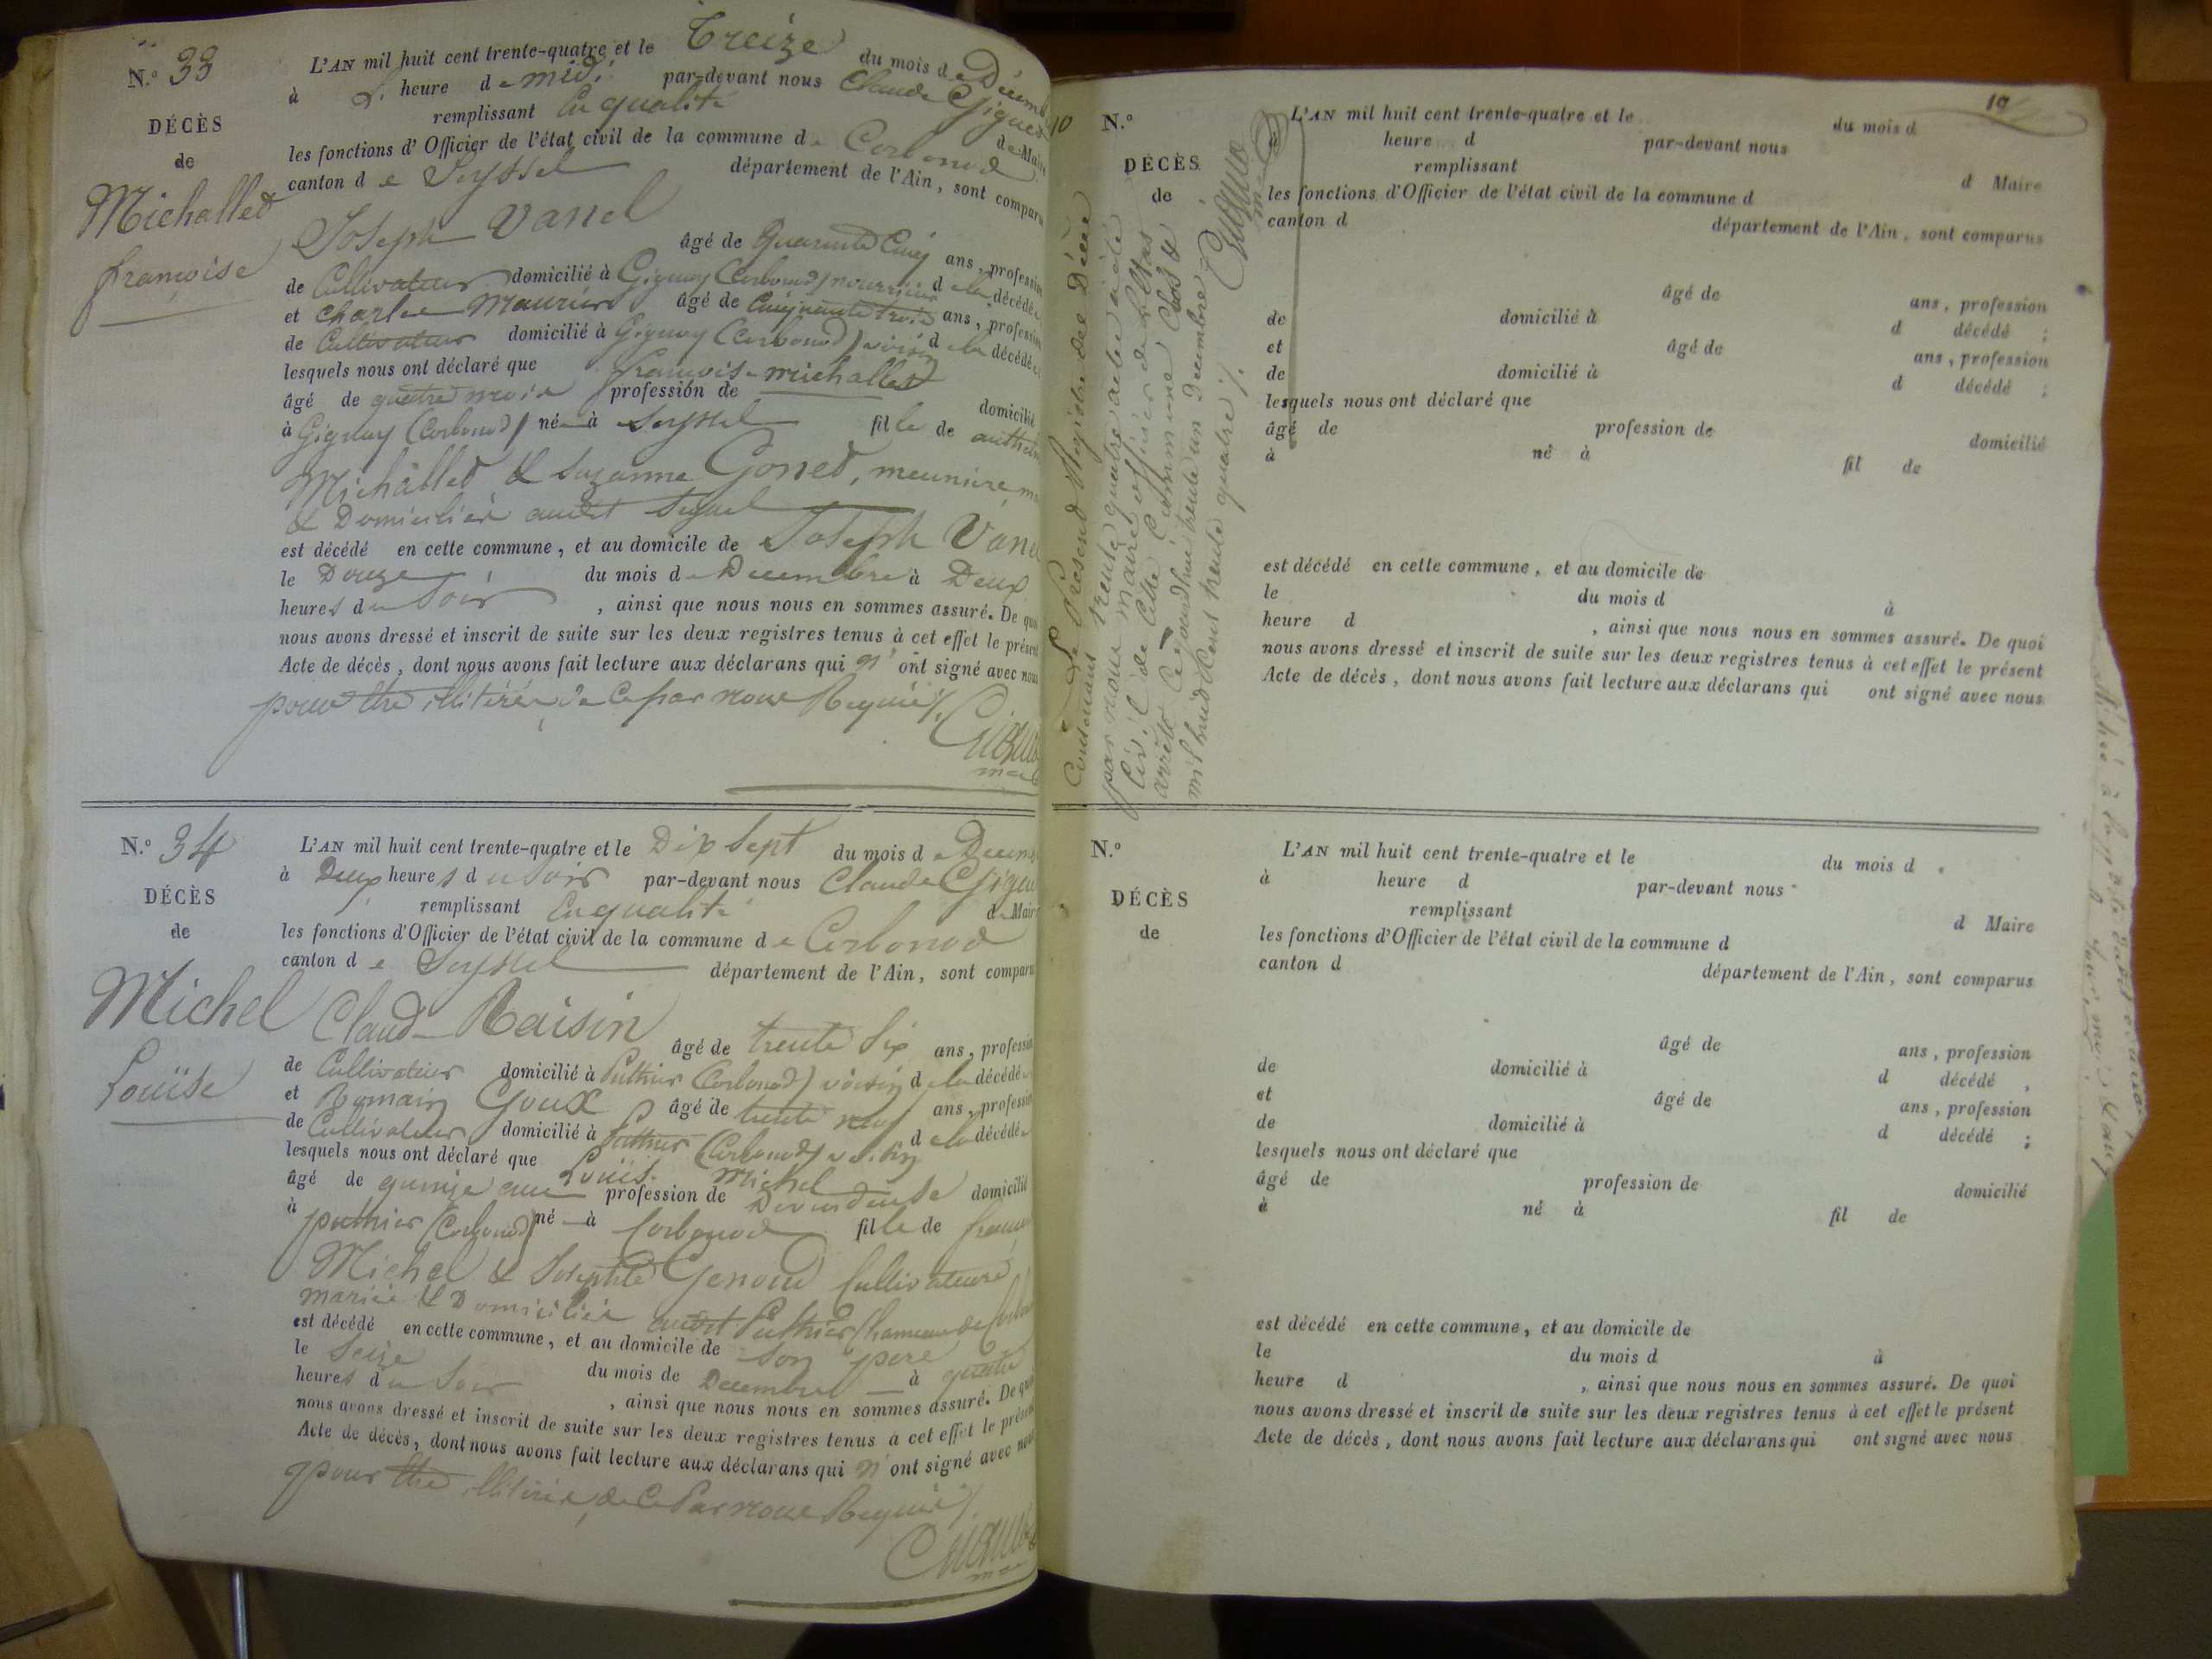 N.o 33
DÉCÈS
de
Michallet
françoise
L'AN mil huit cent trente-quatre et le Treize du mois de Décemb
à heure de midi par-devant nous Claude Giguet
remplissant En qualité de Maire
les fonctions d'Officier de l'état civil de la commune de Corbonod
canton de Seyssel département de l'Ain, sont comparu
Joseph Vanel
âgé de Quarante Cinq ans, profession
de Cultivateur domicilié à Gignay (Corbonod) nourricier de la décédée
et Charles Maurier âgé de Cinquante trois ans, profession
de Cultivateur domicilié à Gignay (Corbonod) voisin de la décédée
lesquels nous ont déclaré que françoise michallet
âgé de quatre mois profession de domicilié
à Gignay (Corbonod) née à Seyssel fille de
Michallet & Suzanne Gonet, meuniers
& Domiciliés audit Seyssel
est décédé en cette commune, et au domicile de Joseph Vanel
le Douze du mois de Decembre à Deux
heures du Soir, ainsi que nous nous en sommes assuré. De quoi
nous avons dressé et inscrit de suite sur les deux registres tenus à cet effet le présent
Acte de décès, dont nous avons fait lecture aux déclarans qui n'ont signé avec nous
pour être illitérés de ce par nous Requis
N.o 34
DÉCÈS
de
Michel
Louise
L'AN mil huit cent trente-quatre et le Dix Sept du mois de Decemb
à Deux heures du Soir par-devant nous Claude Giguet
remplissant En qualité de Maire
les fonctions d'Officier de l'état civil de la commune de Corbonod
canton de Seyssel département de l'Ain, sont comparu
Claude Raisin
âgé de trente Six ans, profession
de Cultivateur domicilié à Puthier (Corbonod) voisin de la décédée
et Romain Goux âgé de trente neuf ans, profession
de Cultivateur domicilié à Puthier (Corbonod) voisin de la décédée
lesquels nous ont déclaré que Louise Michel
âgé de quinze ans profession de domicilié
à puthier (Corbonod) née à Corbonod fille de
Michel & Josephte Genoud Cultivateurs
mariés & Domiciliés audit Puthier hameau de
est décédé en cette commune, et au domicile de Son père
le Seize du mois de Decembre à quatre
heures du Soir, ainsi que nous nous en sommes assuré. De quoi
nous avons dressé et inscrit de suite sur les deux registres tenus à cet effet le présent
Acte de décès, dont nous avons fait lecture aux déclarans qui n'ont signé avec nous
pour être illitérés, de ce Par nous Requis
10
Le Présent Registre des Décès
Contenant trente quatre actes a été
par nous maire officier de l'état
Civil de Cette Commune Clos &
arrêté Cejourd'hui trente un Decembre
mil huit Cent trente quatre
N.o
DÉCÈS
de
L'AN mil huit cent trente-quatre et le du mois d
heure d par-devant nous
remplissant d Maire
les fonctions d'Officier de l'état civil de la commune d
canton d département de l'Ain, sont comparus
âgé de ans, profession
de domicilié à d décédé ;
et âgé de ans, profession
de domicilié à d décédé ;
lesquels nous ont déclaré que
âgé de profession de domicilié
à né à fil de
est décédé en cette commune, et au domicile de
le du mois d à
heure d , ainsi que nous nous en sommes assuré. De quoi
nous avons dressé et inscrit de suite sur les deux registres tenus à cet effet le présent
Acte de décès, dont nous avons fait lecture aux déclarans qui ont signé avec nous
N.o
DÉCÈS
de
L'AN mil huit cent trente-quatre et le du mois d
à heure d par-devant nous
remplissant d Maire
les fonctions d'Officier de l'état civil de la commune d
canton d département de l'Ain, sont comparus
âgé de ans, profession
de domicilié à d décédé ,
et âgé de ans, profession
de domicilié à d décédé ;
lesquels nous ont déclaré que
âgé de profession de domicilié
à né à fil de
est décédé en cette commune, et au domicile de
le du mois d à
heure d , ainsi que nous nous en sommes assuré. De quoi
nous avons dressé et inscrit de suite sur les deux registres tenus à cet effet le présent
Acte de décès, dont nous avons fait lecture aux déclarans qui ont signé avec nous